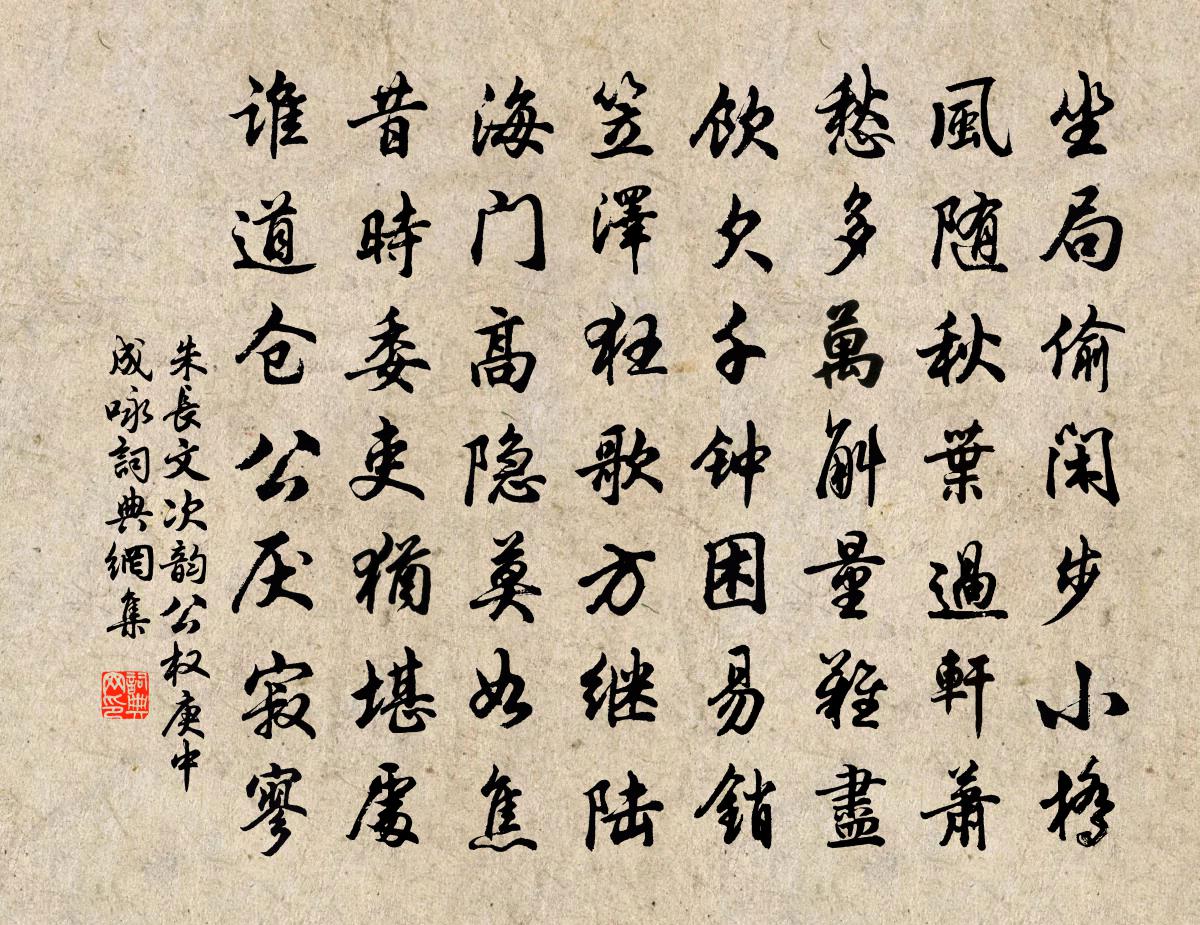 坐局偷闲步小橋
風随秋葉過軒蕭
愁多萬斛量難盡
飲欠千钟困易銷
笠澤狂歌方继陆
海门高隐莫如焦
昔時委吏猶堪處
谁道仓公厌寂寥
朱長文次韵公权庚中
成咏詞典網集
詞典网印